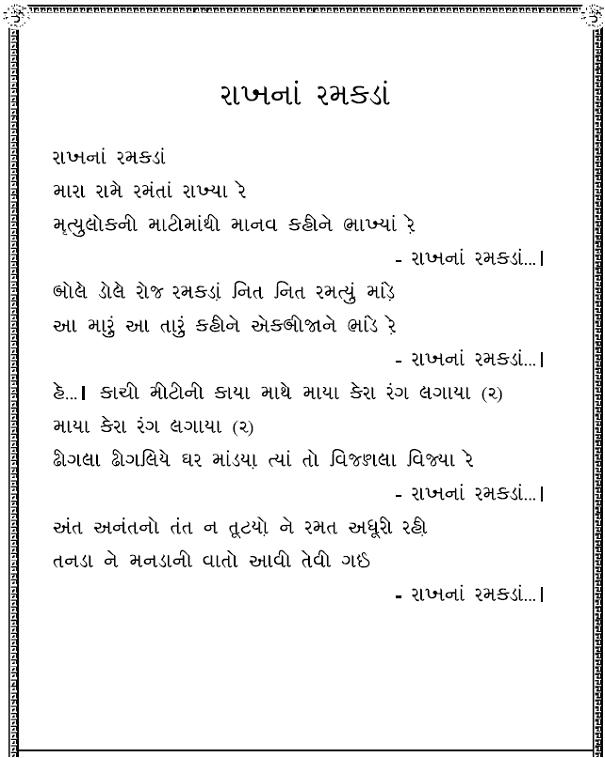 રાખનાં રમકડાં
રાખનાં રમકડાં
મારા રામે રમંતાં રાખ્યા રે
મૃત્યુલોકની માટીમાંથી માનવ કહીને ભાખ્યાં રે
- રાખનાં રમકડાં...।
બોલે ડોલે રોજ રમકડાં નિત નિત રમત્યું માંડે
આ મારું આ તારું કહીને એકબીજાને ભાંડે રે
- રાખનાં રમકડાં...।
હે...। કાચી મીટીની કાયા માથે માયા કેરા રંગ લગાયા (૨)
માયા કેરા રંગ લગાયા (૨)
ઢીગલા ઢીગલિયે ઘર માંડયા ત્યાં તો વિજણલા વિજ્યા રે
- રાખનાં રમકડાં...।
અંત અનંતનો તંત ન તૂટયો ને રમત અધૂરી રહી
તનડા ને મનડાની વાતો આવી તેવી ગઈ
- રાખનાં રમકડાં...।